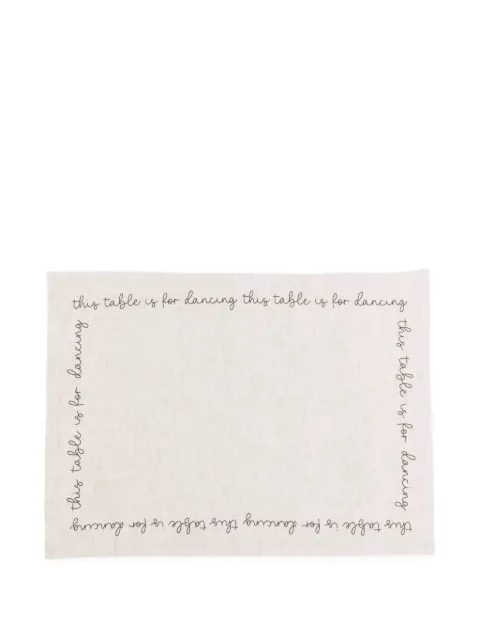 this table is for dancing this table is for dancing
this table is for dancing
this table is for dancing this table is for dancing
this table is for dancing